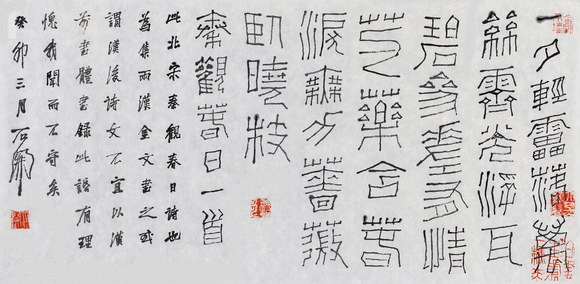 一夕輕雷落萬
絲霽光浮瓦
碧參差有情
芍藥含春
淚無力薔薇
臥曉枝
秦觀春日一首
此北宋秦觀春日詩也
集兩漢金文書之或
謂漢後詩文不宜以漢
前書體書錄此語有理
愧我聞而不守矣
癸卯三月石開